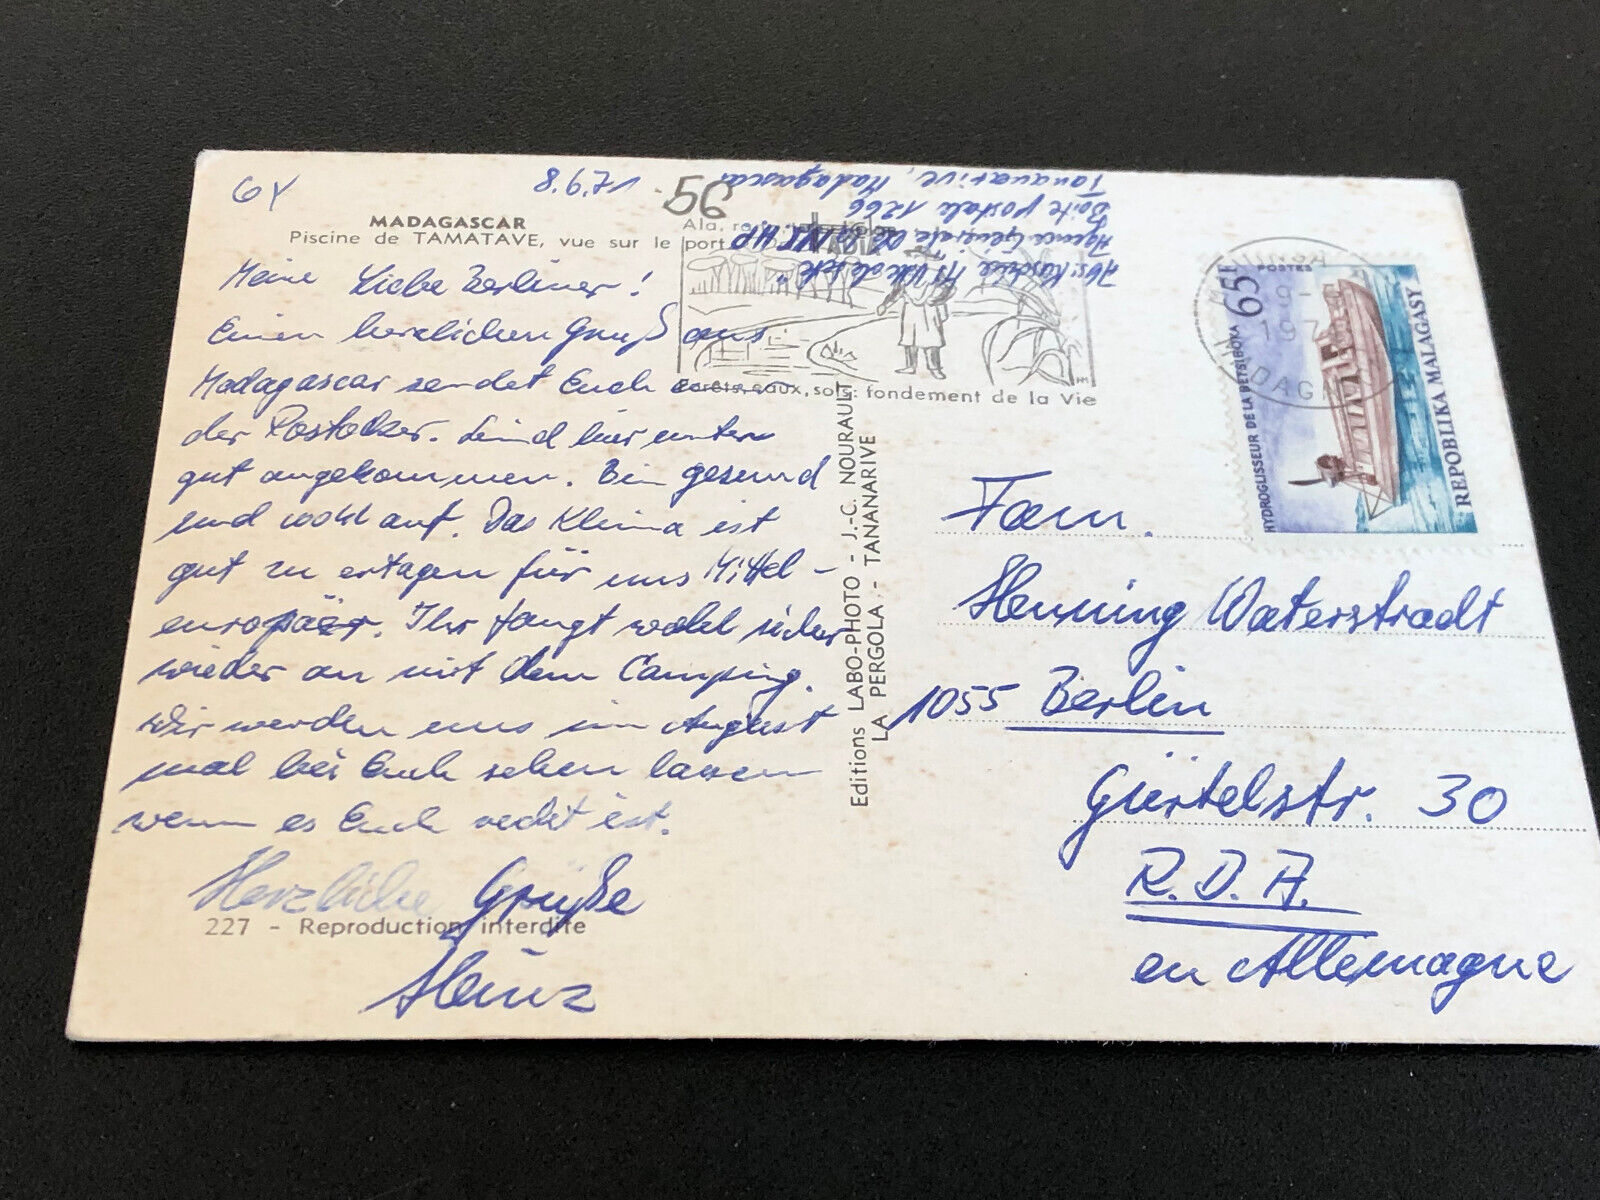 GY
8.6.71
56
MADAGASCAR
Piscine de TAMATAVE, vue sur le port
Meine Liebe Berliner!
Einen herzlichen Gruß aus
Madagascar sendet Euch
der Rostocker. Sind hier unten
gut angekommen. Bin gesund
und wohl auf. Das Klima ist
gut zu ertagen für uns Mittel-
europäer. Ihr fangt wohl sicher
wieder an mit dem Camping.
Wir werden uns im August
mal bei Euch sehen lassen
wenn es Euch recht ist.
Herzliche Grüße
227 - Reproduction interdite
Heinz
Editions LABO-PHOTO - J.-C. NOURAULT
LA PERGOLA - TANANARIVE
Agence Generale
Boite Postale 1266
Tananarive, Madagascar
Ala,
eaux, sols: fondement de la Vie
POSTES
65F
HYDROGLISSEUR DE LA BETSIBOKA
REPOBLIKA MALAGASY
Fam.
Henning Waterstradt
1055 Berlin
Gürtelstr. 30
R.D.A.
en Allemagne